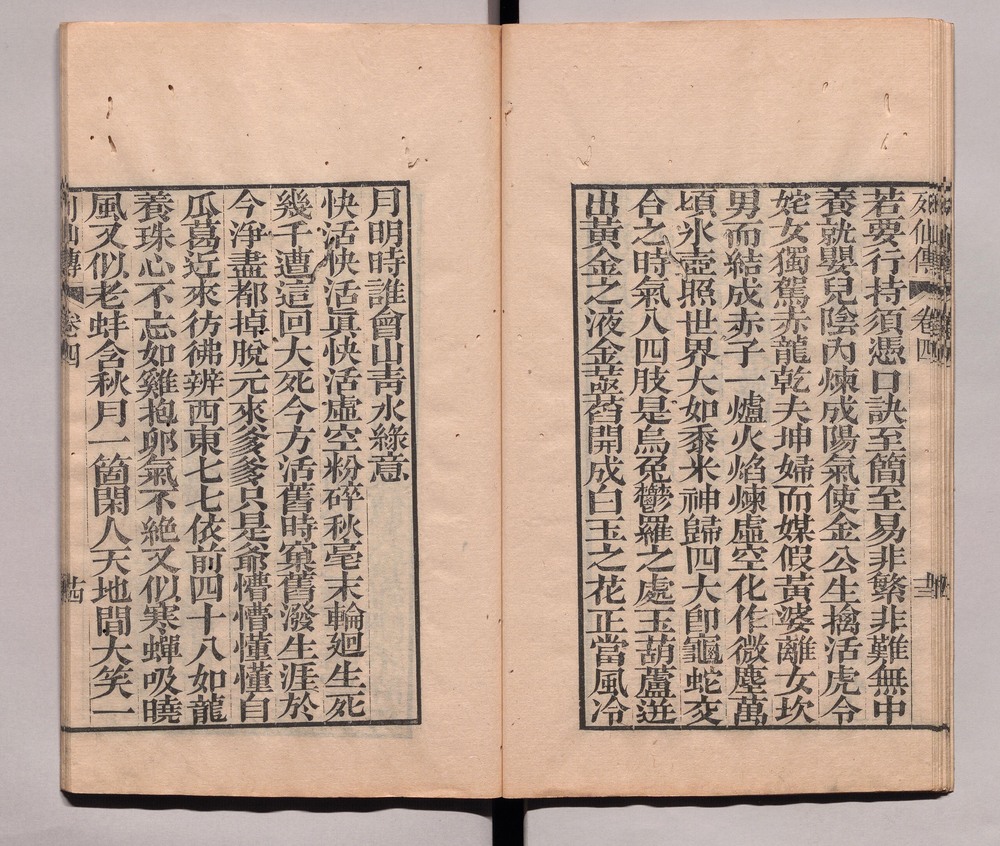 列仙傳
卷四
若要行持須憑口訣至簡至易非繁非難無中
養就嬰兒陰內煉成陽氣使金公生擒活虎令
姹女獨駕赤龍乾夫坤婦而媒假黃婆離女坎
男而結成赤子一爐火焰煉虛空化作微塵萬
頃氷壺照世界大如黍米神歸四大卽龜蛇交
合之時氣入四肢是烏兔鬱羅之處玉葫蘆迸
出黃金之液金菡萏開成白玉之花正當風冷
月明時誰會山靑水綠意
快活快活眞快活虛空粉碎秋毫末輪廻生死
幾千遭這回大死今方活舊時窠舊潑生涯於
今淨盡都掉脫元來爹爹只是爺懵懵懂懂自
瓜葛近來彷彿辨西東七七依前四十八如龍
養珠心不忘如雞抱卵氣不絕又似寒蟬吸曉
風又似老蚌含秋月一箇閑人天地間大笑一
列仙傳
卷四
廿四